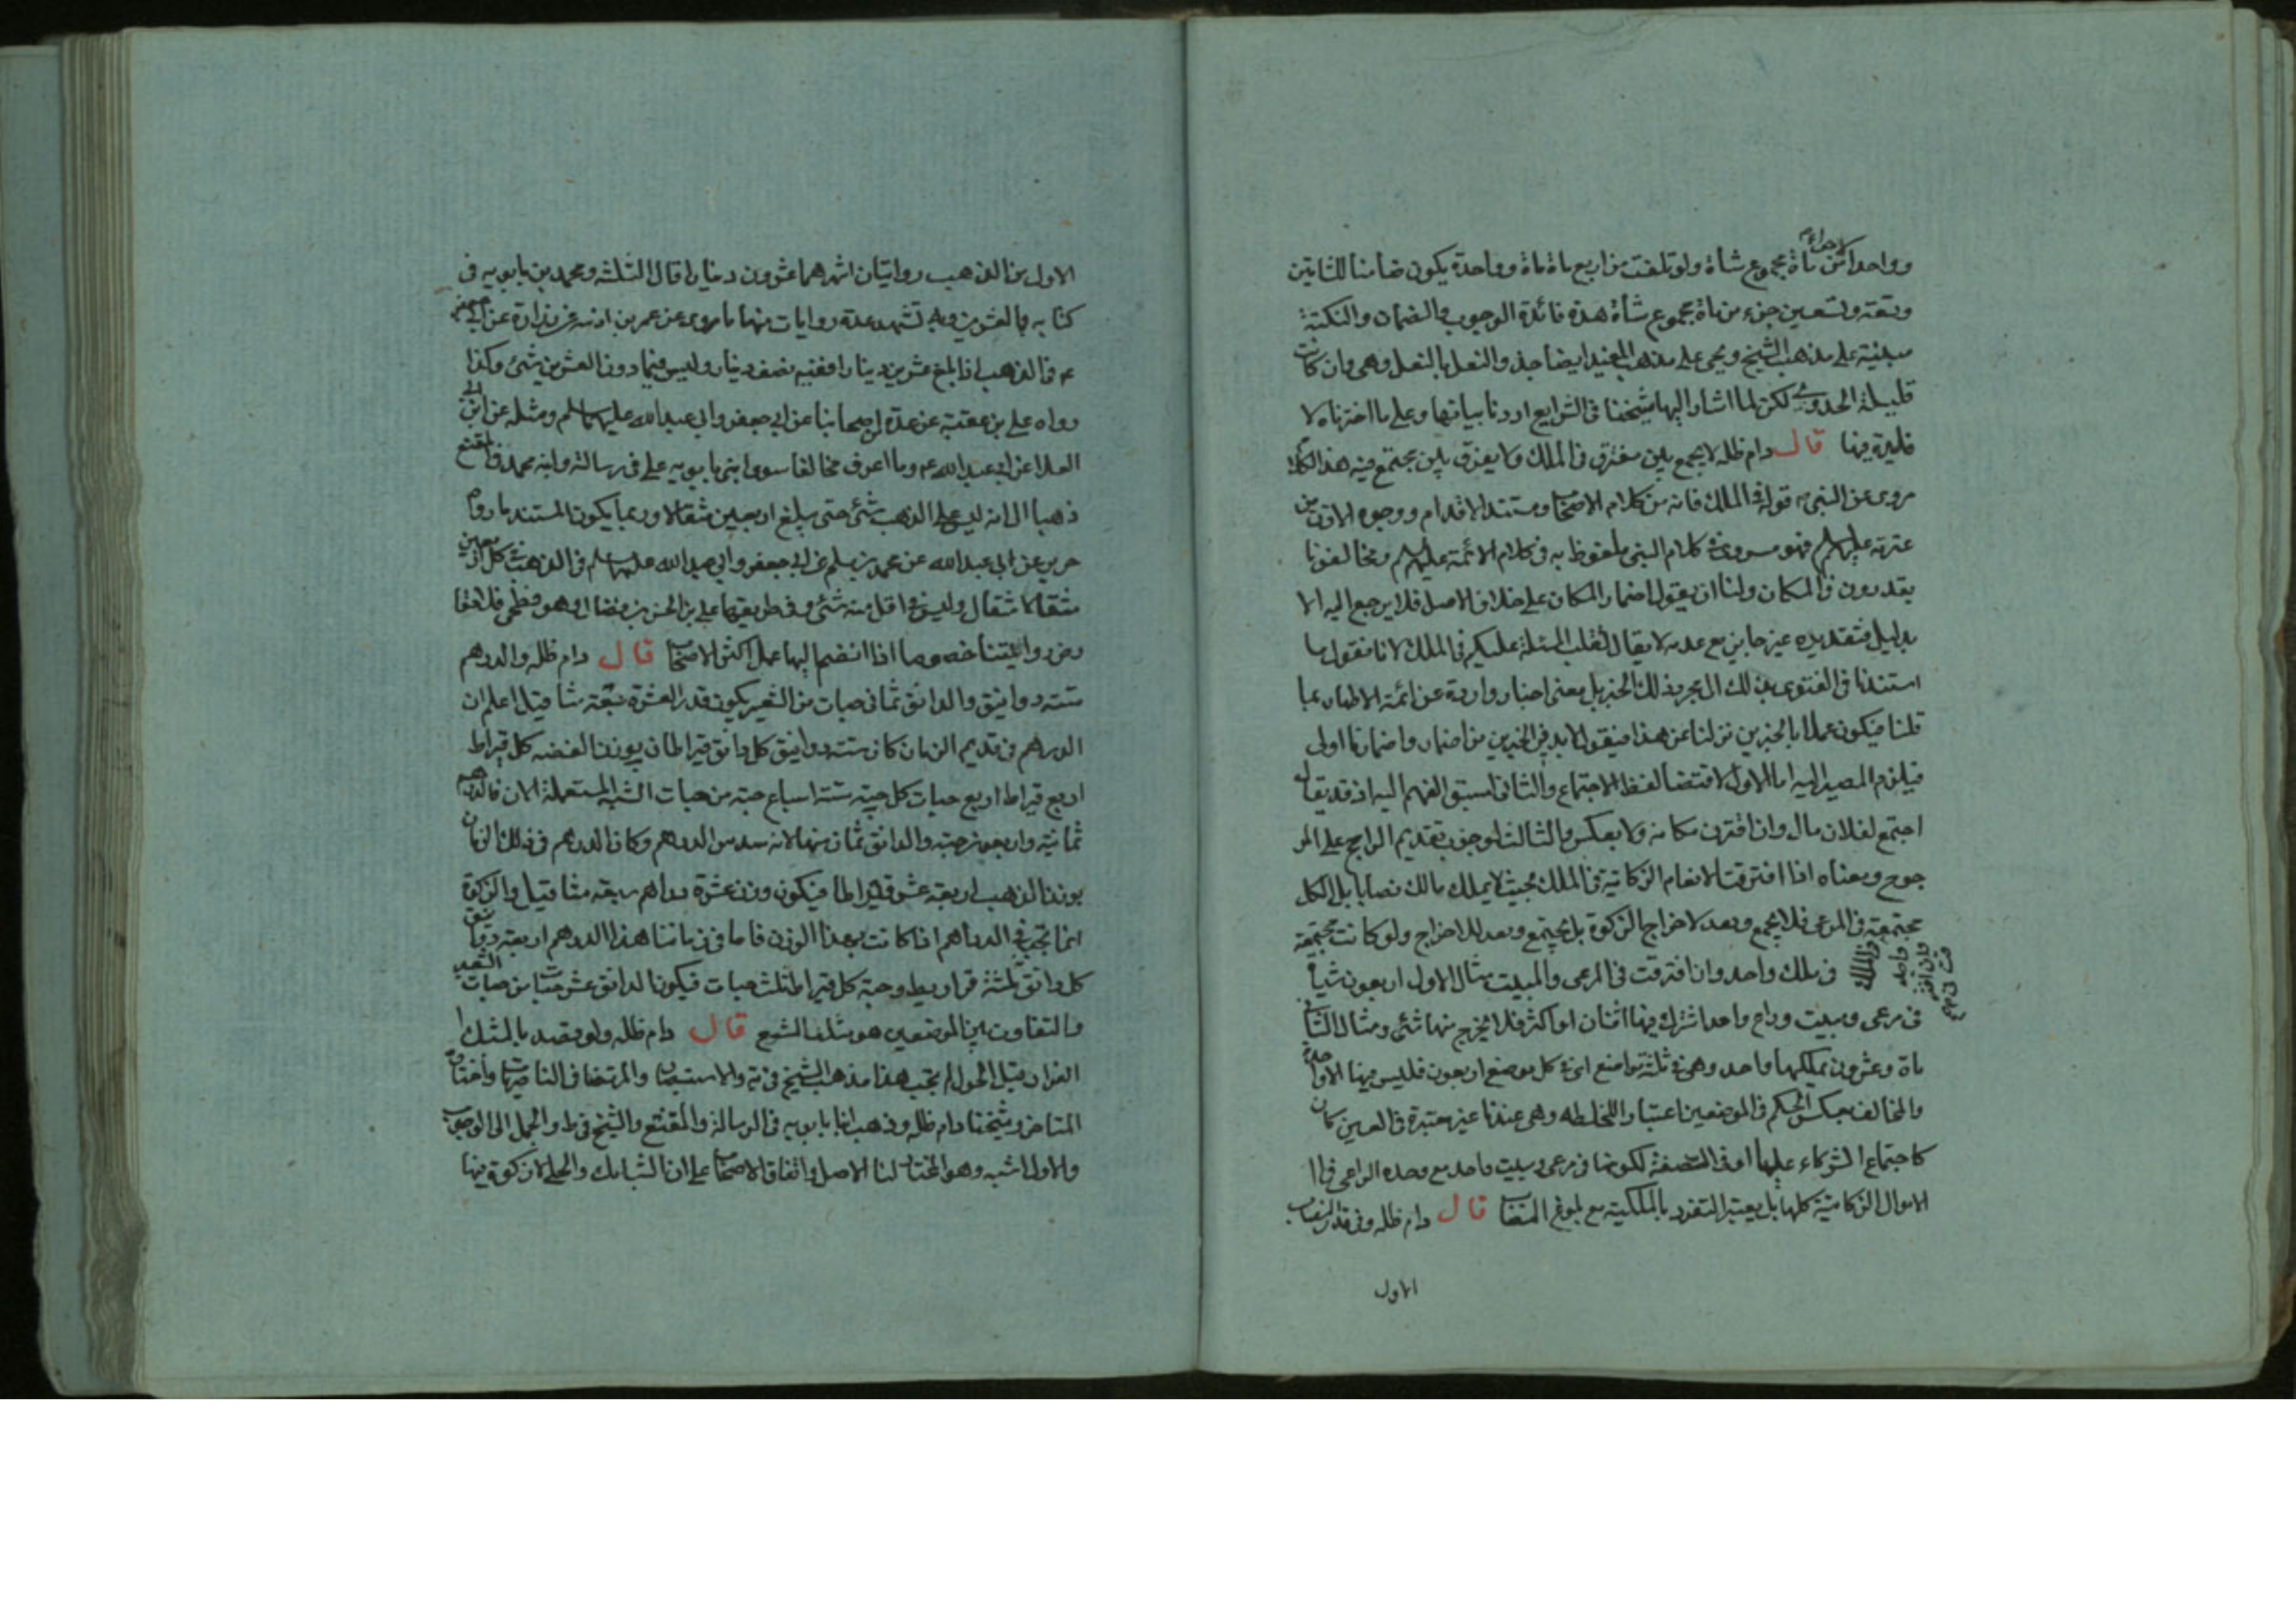 وواحدا من ماة مجموع شاة ولو تلفت من اربع ماة ماة وواحدة يكون ضامنا للثابتين
وتسعة وتسعين جزء من ماة مجموع شاة هذه فائدة الوجوب والضمان والنكتة
مبنية على مذهب الشيخ ويجئ على مذهب المفيد ايضا حذو النعل بالنعل وهى وان كانت
قليلة الجدوى لكن لما اشار اليها شيخنا فى الشرايع اردنا بيانها وعلى ما اخترناه لا
فايدة فيها قال دام ظله لا يجمع بين مفترق فى الملك ولا يفرق بين مجتمع فيه هذا الكلام
مروى عن النبى ص قوله فى الملك فانه من كلام الاصحاب ومستند الاقدام ووجوه الاذن من
عترته عليهم السلم فهو مروى فى كلام النبى ملفوظ به فى كلام الائمة عليهم السلم ومخالفونا
يقدرون فى المكان ولنا ان نقول اضمار المكان على خلاف الاصل فلا يرجع اليه الا
بدليل فتقديره غير جايز مع عدمه لا يقال نقلب المسئلة عليكم فى الملك لانا نقول ما
استندنا فى الفتوى بذلك الى مجرد ذلك الخبر بل معنى اخبار واردة عن ائمة الاطهار بما
قلنا فيكون عملا بالخبرين نزلنا عن هذا فنقول لابد فى الخبرين من اضمار واضمارنا اولى
فيلزم المصير اليه اما الاول لاقتضا لفظ الاجتماع والثانى لسبق الفهم اليه اذ قد يقال
اجتمع لفلان مال وان افترق مكانه ولا يعكس والثالث لوجوب تقديم الراجح على المر
جوح ومعناه اذا افترقت الانعام الزكاتية فى الملك بحيث لا يملك مالك نصابا بل الكل
مجتمعة فى المرعى فلا يجمع ويعد لاخراج الزكوة بل يجتمع ويعد للاخراج ولو كانت مجتمعة
فى ملك واحد وان افترقت فى المرعى والمبيت مثال الاول اربعون شياة
فى مرعى ومبيت وراع واحد اشترك فيها اثنان او اكثر فلا يخرج منها شئ ومثال الثانى
ماة وعشرون يملكها واحد وهى فى ثلثة مواضع اى فى كل موضع اربعون فليس فيها الا واحدة
والمخالف يعكس الحكم فى الموضعين اعتبارا للخلطه وهى عندنا غير معتبرة فى العين كان
كاجتماع الشركاء عليها او فى الصفة لكونها فى مرعى ومبيت واحد مع وحده الراعى فى ا
الاموال الزكاتية كلها بل يعتبر التفرد بالملكية مع بلوغ النصاب قال دام ظله وفى قدر النصاب
الاول
الاول من الذهب روايتان اشهرهما عشرون دينارا قال الثلثة ومحمد بن بابويه فى
كتابه بالعشرين وبه تشهد عدة روايات منها ما روى عن عمر بن اذينه عن زرارة عن ابى جعفر
ع فى الذهب اذا بلغ عشرين دينارا ففيه نصف دينار وليس فيما دون العشرين شئ وكذا
رواه على بن عقبة عن عدة من اصحابنا عن ابى جعفر وابى عبد الله عليهما السلم ومثله عن ابن ابى
العلا عن ابى عبد الله ع وما اعرف مخالفا سوى ابنى بابويه على فى رسالته وابنه محمد فى المقنع
ذهبا الى انه ليس على الذهب شئ حتى يبلغ اربعين مثقالا وربما يكون المستند ما رواه
حريز عن ابى عبد الله عن محمد بن مسلم عن ابى جعفر وابى عبد الله عليهما السلم فى الذهب فى كل اربعين
مثقالا مثقال وليس فى اقل منه شئ وفى طريقها على بن الحسن بن فضال وهو فطحى فلا تعا
رض روايتنا خصوصا اذا انضم اليها عمل اكثر الاصحاب قال دام ظله والدرهم
ستة دوانيق والدانق ثمانى حبات من الشعير يكون قدر العشرة سبعة مثاقيل اعلم ان
الدرهم فى قديم الزمان كان ستة دوانيق كل دانق قيراطان بوزن الفضه كل قيراط
اربع قيراط اربع حبات كل حبة ستة اسباع حبة من حبات الشعير المستعملة الان فالدرهم
ثمانية واربعون حبة والدانق ثمان منها لانه سدس الدرهم وكان الدرهم فى ذلك الزمان
بوزن الذهب اربعة عشر قيراطا فيكون وزن عشرة دراهم سبعة مثاقيل والزكوة
انما تجب فى الدراهم اذا كانت بهذا الوزن فاما فى زماننا هذا الدرهم اربعة دوانيق
كل دانق ثلثة قراريط وحبة كل قيراط ثلث حبات فيكون الدانق عشر حبات من حبات الشعير
والتفاوت بين الموضعين هو مثلث الشعير قال دام ظله ولو قصد بالسبك
الفرار قبل الحول لم تجب هذا مذهب الشيخ فى ية والاستبصار والمرتضى فى الناصريات واختاره
المتاخر وشيخنا دام ظله وذهب ابنا بابويه فى الرسالة والمقنع والشيخ فى ط والجمل الى الوجوب
والاول اشبه وهو المختار لنا الاصل واتفاق الاصحاب على ان السبائك والحلى لا زكوة فيها